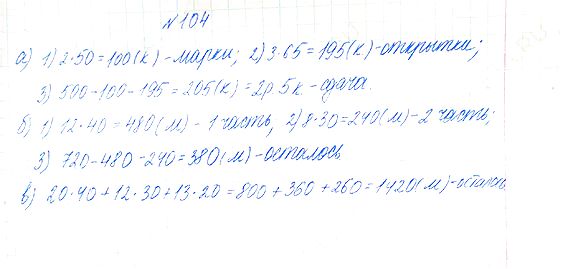 №104
а) 1) 2·50=100(к) - марки; 2) 3·65=195(к) - открытки;
3) 500-100-195=205(к)=2р.5к - сдача.
б) 1) 12·40=480(м) - 1 часть, 2) 8·30=240(м) - 2 часть;
3) 720-480-240=380(м) - осталось
в) 20·40+12·30+13·20=800+360+260=1420(м) - осталось